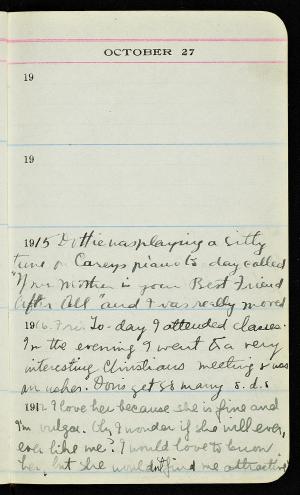 OCTOBER 27
19
19
1915 Dottie was playing a silly
tune on Careys piano to-day called
"Your Mother is your Best Friend
After All" and I was really moved
1916. Fri. To-day I attended classes.
In the evening I went to a very
interesting Christians meeting & was
an usher. Does get so many s.d.s
191 I love her because she is fine and
I'm vulgar. Oh, I wonder if she will ever,
ever like me? I would love to know
her, but she wouldn't find me attractive